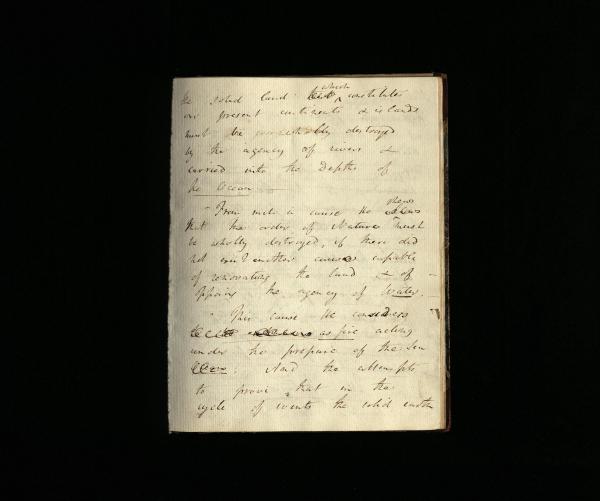 the solid land which constitutes
our present continents & islands
must be destroyed
by the agency of rivers &
carried into the Depths of
the Ocean
"From such a cause he shews
that the order of Nature must
be wholly destroyed, if there did
not exist another cause capable
of renovating the land & of
opposing the agency of Water.
"This cause he considers
as fire acting
under the pressure of the Sea
And he attempts
to prove that in the
cycle of events the solid earth